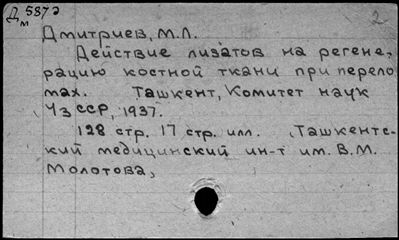 Д 5872
м
2
Дмитриев, М.Л.
Действие лизатов на регене,
рацию костной ткани при перело
мах. Ташкент, Комитет наук
Уз ССР, 1937.
128 стр. 17 стр. илл. (Ташкентс-
кий медицинский ин-т им. В.М.
Молотова)